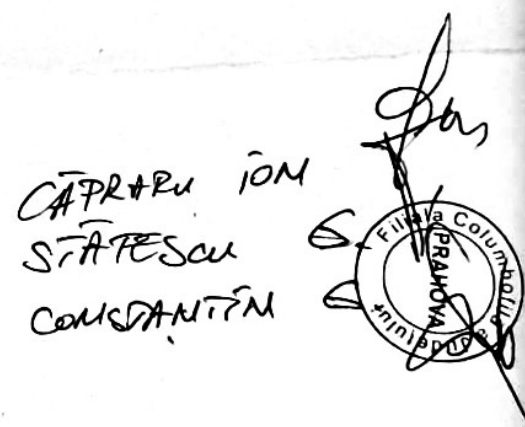 CĂPRARU ION
STĂTESCU
CONSTANTIN
Filiala Columbofilă
Județului
PRAHOVA